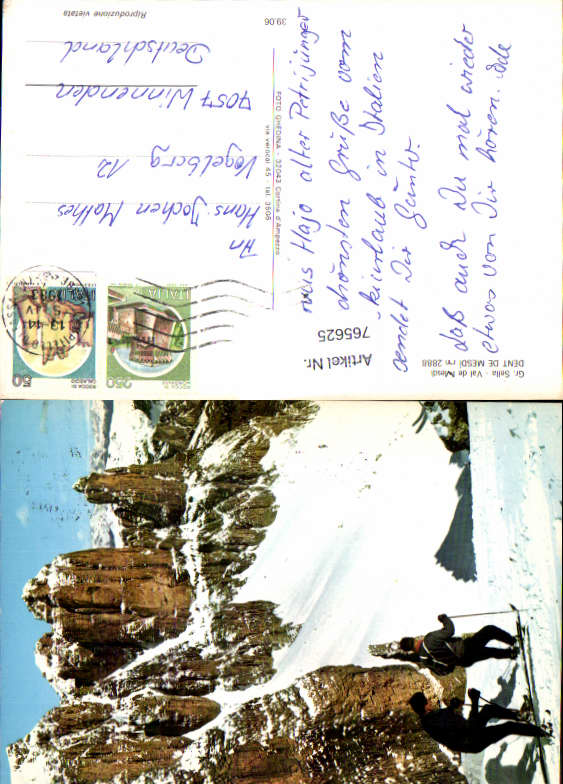 Gr. Sella - Val de Mesdi
DENT DE MESDI m 2888
Artikel Nr.
765625
Hajo alter Petrijünger
Grüße vom
Skiurlaub in Italien
sendet Dir Günter.
daß auch Du mal wieder
etwas von Dir hören. Ade
FOTO GHEDINA - 32043 Cortina d'Ampezzo
via verocai 65 tel. 3606
39.06
Riproduzione vietata
An
Hans-Jochen Mathes
Vogelberg 12
7057 Winnenden
Deutschland
ITALIA
250
ROCCA DI
ITALIA
50
ROCCA DI
CALASCIO
13-14
1983